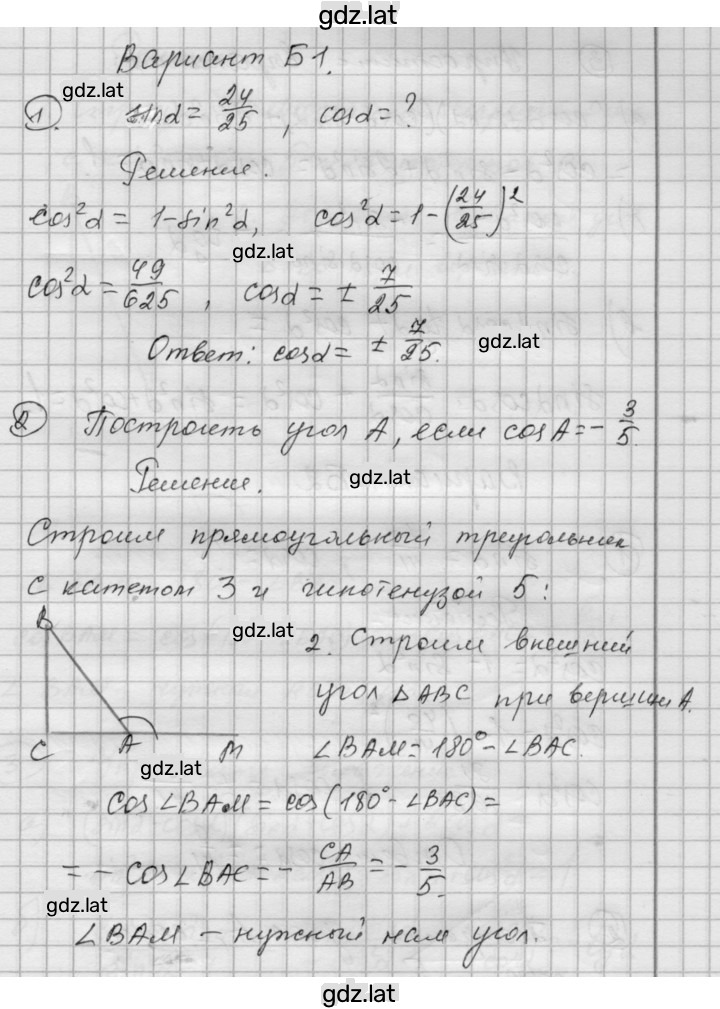 gdz.lat
Вариант Б1.
gdz.lat
1. sinα = 24/25, cosα = ?
Решение.
cos²α = 1 - sin²α, cos²α = 1 - (24/25)²
gdz.lat
cos²α = 49/625, cosα = ± 7/25
Ответ: cosα = ± 7/25.
gdz.lat
2 Построить угол A, если cosA = - 3/5.
Решение.
gdz.lat
Строим прямоугольный треугольник
с катетом 3 и гипотенузой 5:
B
gdz.lat
2. Строим внешний
угол △ABC при вершине A.
C A M
∠BAM = 180° - ∠BAC.
gdz.lat
cos∠BAM = cos(180° - ∠BAC) =
= - cos∠BAC = - CA/AB = - 3/5.
gdz.lat
∠BAM - нужный нам угол.
gdz.lat